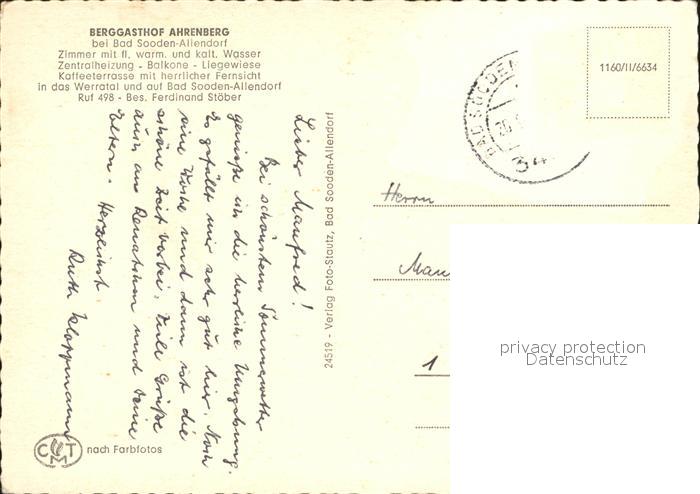 BERGGASTHOF AHRENBERG
bei Bad Sooden-Allendorf
Zimmer mit fl. warm. und kalt. Wasser
Zentralheizung - Balkone - Liegewiese
Kaffeeterrasse mit herrlicher Fernsicht
in das Werratal und auf Bad Sooden-Allendorf
Ruf 498 - Bes. Ferdinand Stöber
Lieber Manfred!
Bei schönstem Sommerwetter
genieße ich die herrliche Umgebung.
Es gefällt mir sehr gut hier. Noch
eine Woche und dann ist die
schöne Zeit vorbei. Viele Grüße
auch an Renatchen und Deine
Eltern. Herzlichst
Ruth Kloppmann
24519 - Verlag Foto-Stautz, Bad Sooden-Allendorf
CMT
nach Farbfotos
BAD SOODEN
1160/II/6634
Herrn
Man
1
privacy protection
Datenschutz